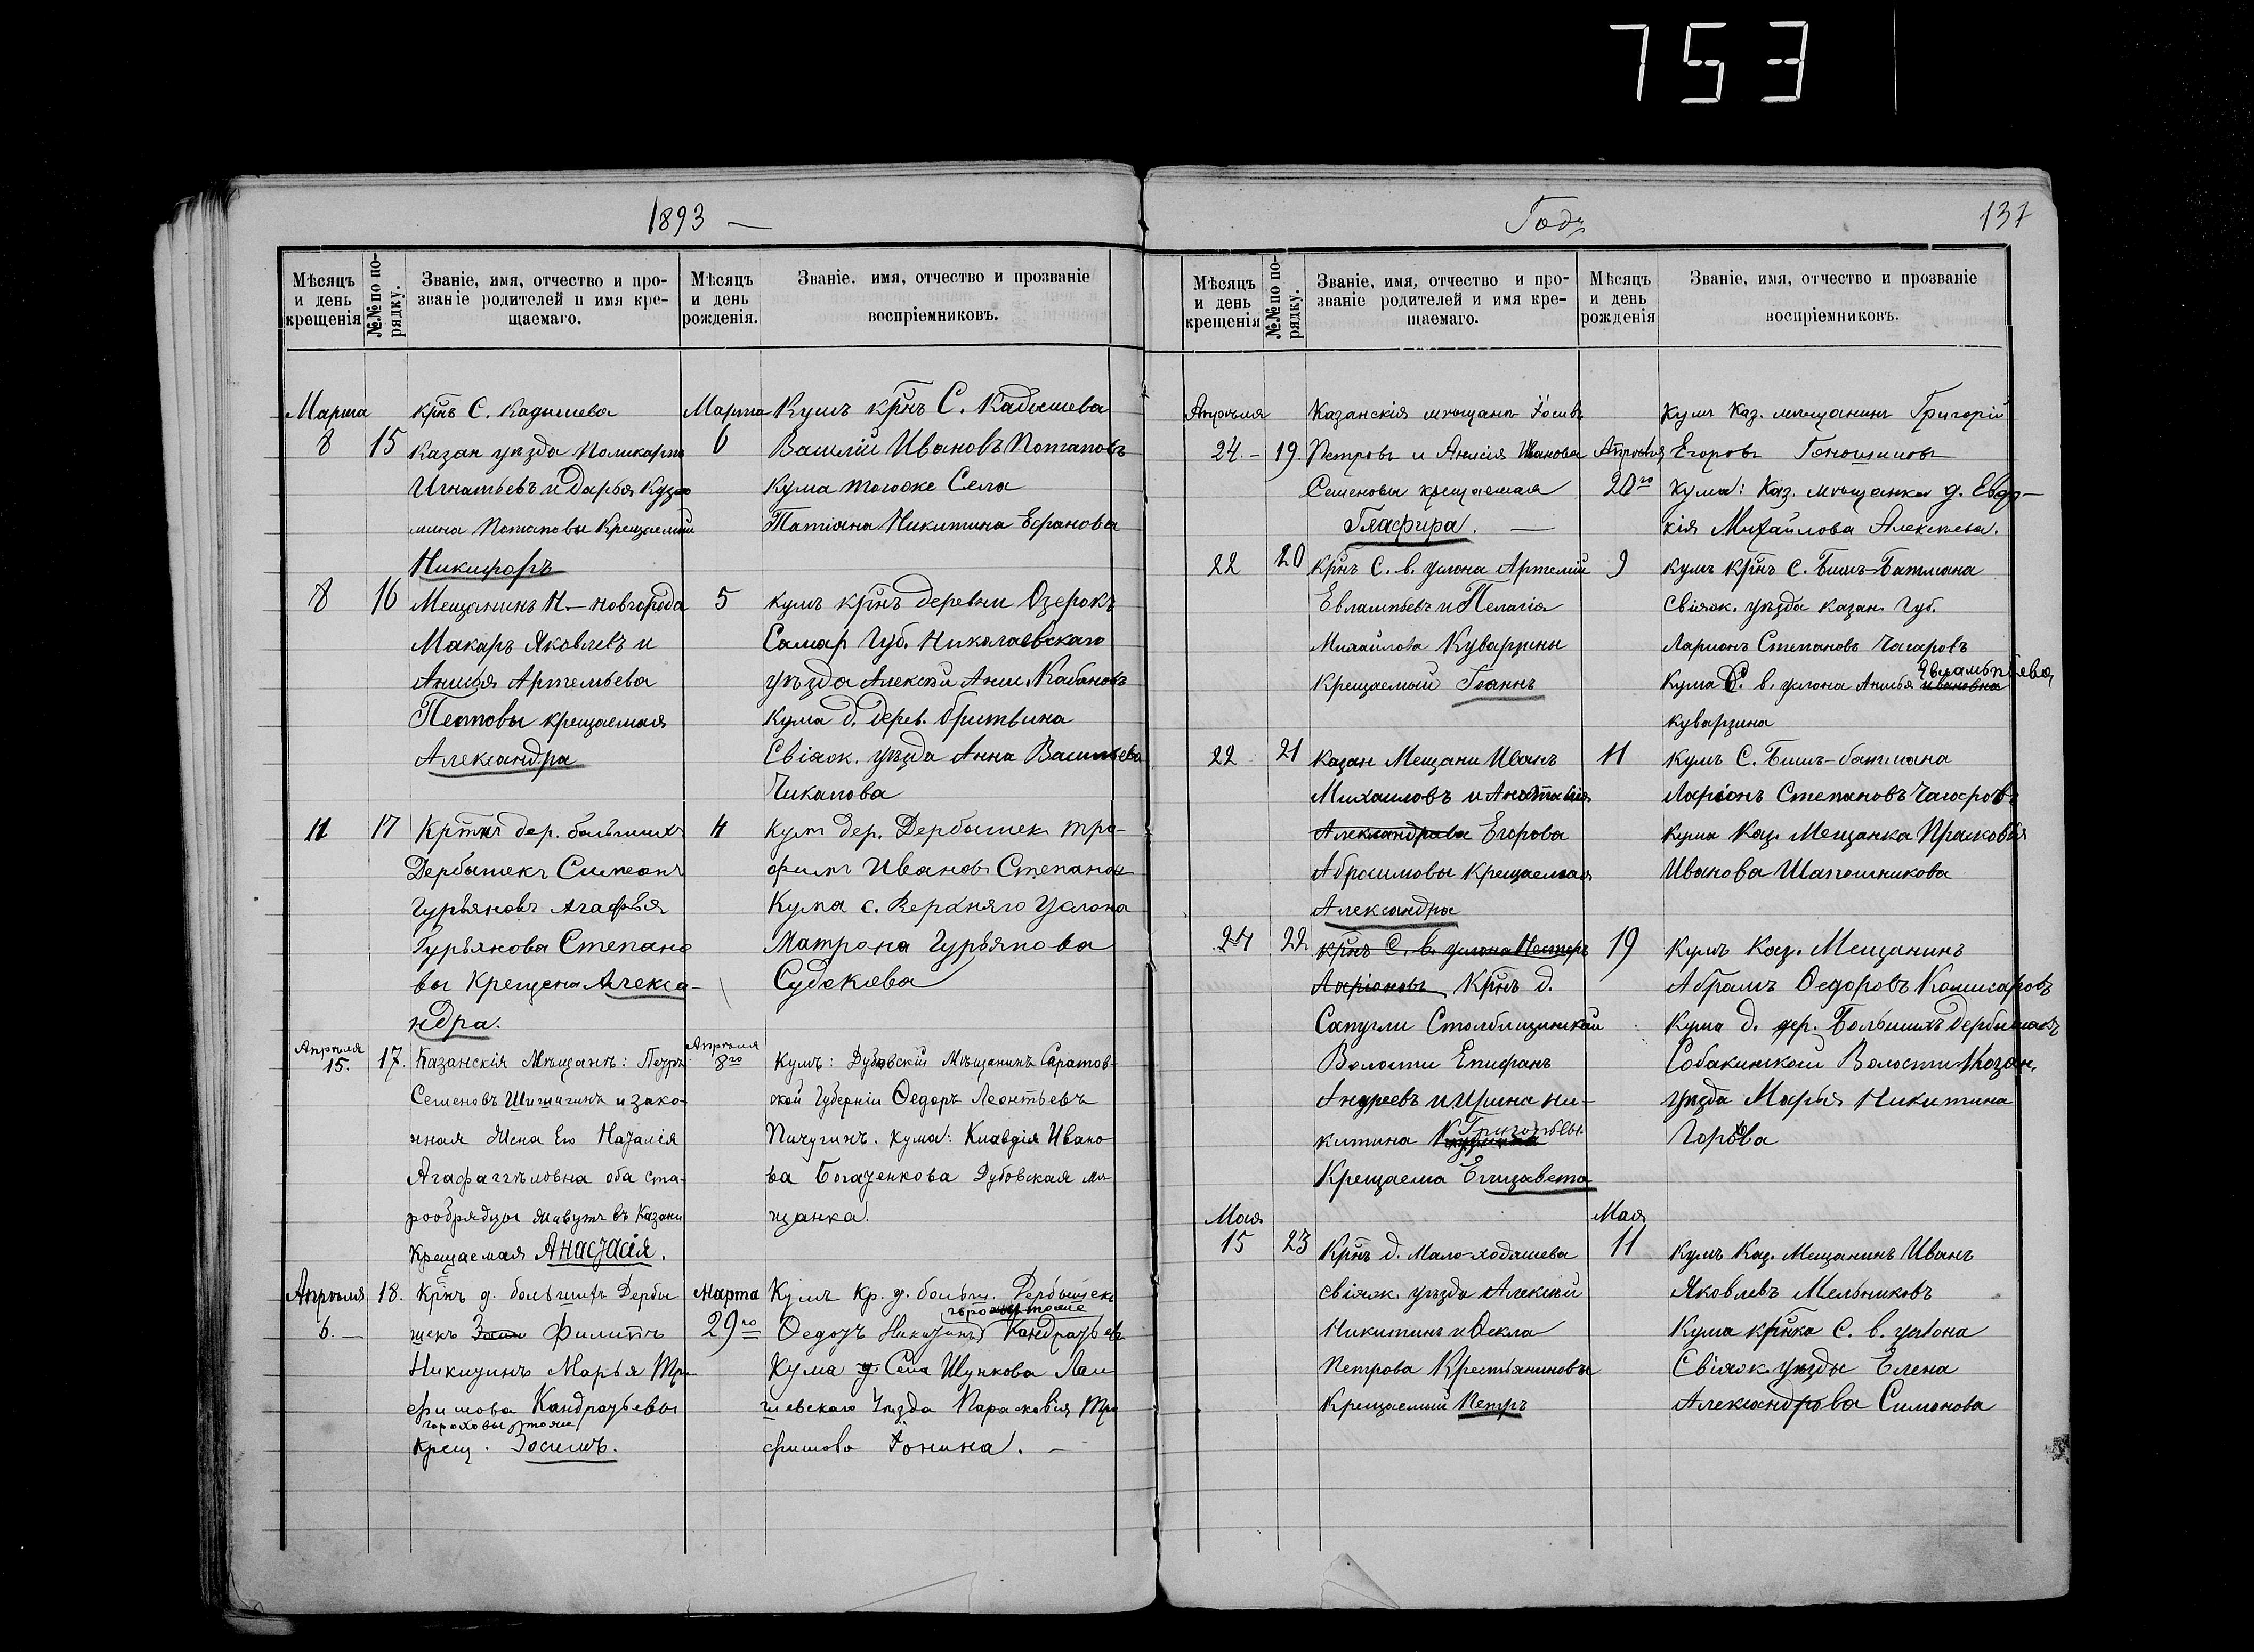 753
1893 —
Мѣсяцъ и день крещенія
№№ по порядку.
Званіе, имя, отчество и прозваніе родителей и имя крещаемаго.
Мѣсяцъ и день рожденія.
Званіе, имя, отчество и прозваніе воспріемниковъ.
Марта
8
15
крнъ С. Кадышева
Казан уѣзда Поликарпъ
Игнатьевъ и Дарья Кузь
мина Потаповы Крещаемый
Никифоръ
Марта
6
Кумъ крнъ С. Кадышева
Василій Ивановъ Потаповъ
Кума тогоже Села
Татіана Никитина
8
16
Мещанинъ Н.-новгорода
Макаръ Яковлевъ и
Анисія Артемьева
крещаемая
Александра
5
кумъ крнъ деревни Озерокъ
Самар Губ. Николаевскаго
уѣзда Алексѣй Кабановъ
Кума д. дерев.
Свіяж. уѣзда Анна Васильева
Чикалова
11
17
Кртнъ дер. большихъ
Дербышекъ Симеонъ
Гурьяновъ Агафья
Гурьянова Степано
вы Крещена Алекса-
ндра.
4
Кумъ дер. Дербышек Тро-
фимъ Иванов Степанов
Кума с. Верхняго Услона
Матрона Гурьянова
Апрѣля
15.
17.
Казанскія Мѣщанъ: Петръ
Семеновъ Шишигинъ и зако-
нная Жена Его Наталія
Агафаггѣловна оба ста-
рообрядцы живутъ въ Казани
крещаемая Анастасія.
Апрѣля
8го
Кумъ: Дубовскій Мѣщанинъ Саратов-
ской Губерніи Ѳедоръ Леонтьевъ
Пичугинъ. кума: Клавдія Ивано
ва Богатенкова Дубовская мѣ
щанка.
Апрѣля
6.—
18.
Крнъ д. большихъ Дербы
шекъ Филиппъ
Никитинъ Марья Тро-
фимова Кандратьевы
гороховы тоже
крещ. Зосимъ.
Марта
29го
Кумъ Кр. д. больш. Дербышекъ
Ѳедотъ Никитинъ Кандратьевъ
Кума Села Шункова Лаи
шевскаго Уѣзда Парасковія Тро
фимова Іонина. —
Годъ
137
Мѣсяцъ и день крещенія
№№ по порядку.
Званіе, имя, отчество и прозваніе родителей и имя крещаемаго.
Мѣсяцъ и день рожденія
Званіе, имя, отчество и прозваніе воспріемниковъ.
Апрѣля
24.—
19.
Казанскія мѣщанъ Іосивъ
Петровъ и Анисія Иванова
Семеновы крещаемая
Глафира. —
Апрѣля
20го
Кумъ Каз. мѣщанинъ Григорій
Егоровъ
Кума: Каз. мѣщанка д. Евдо-
кія Михайлова Алексѣева.
22
20
Крнъ С. в. услона Артемій
Евлампьевъ и Пелагія
Михайлова Куварзины
Крещаемый Іоаннъ
9
кумъ крнъ С. Бишъ-Батмана
Свіяж. уѣзда казан. Губ.
Ларионъ Степановъ Чагаровъ
Кума С. в. услона Анисья Ивановна Евлампьева
куварзина
22
21
Казан Мещани Иванъ
Михаиловъ и Анастасія
Александрова Егорова
Абросимовы Крещаемая
Александра
11
Кумъ С. Бишъ-батмана
Ларіонъ Степановъ Чагаровъ
Кума Каз. Мещанка Прасковья
Иванова Шапошникова
24
22
крнъ С. в. услона Нестеръ
Ларіоновъ Крнъ д.
Сапугли Столбищинской
Волости Епифанъ
Андреевъ и Ирина Ни-
китина Григорьевы.
Крещаема Елизавета
19
Кумъ Каз. Мещанинъ
Абрамъ Ѳедоровъ Комисаровъ
Кума д. дер. Большихъ Дербышекъ
Собакинской Волости Казан.
уѣзда Марья Никитина
Мая
15
23
Крнъ д. Мало-ходашева
свіяж. уѣзда Алексѣй
Никитинъ и Ѳекла
Петрова Крестьяниновы
Крещаемый Петръ
Мая
11
Кумъ Каз. Мещанинъ Иванъ
Яковлевъ Мельниковъ
Кума крнка С. в. услона
Свіяж. уѣзды Елена
Александрова Симонова